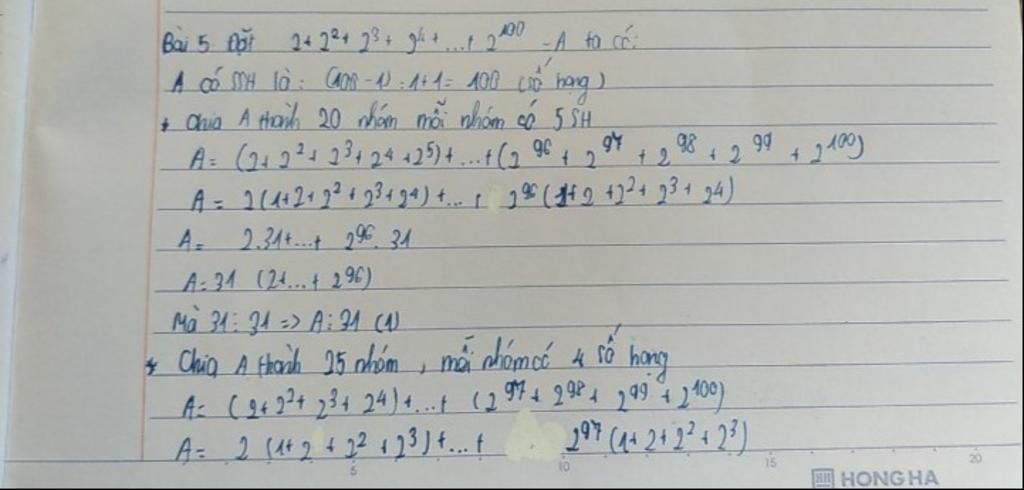 Bài 5. Đặt 2+2²+2³+2⁴+...+2¹⁰⁰ =A ta có:
A có SSH là: (100-1):1+1= 100 (số hạng)
* Chia A thành 20 nhóm mỗi nhóm có 5SH
A= (2+2²+2³+2⁴+2⁵)+...+(2⁹⁶+2⁹⁷+2⁹⁸+2⁹⁹+2¹⁰⁰)
A= 2(1+2+2²+2³+2⁴)+...+ 2⁹⁶(1+2+2²+2³+2⁴)
A= 2.31+...+ 2⁹⁶.31
A=31 (2+...+2⁹⁶)
Mà 31⋮31 => A⋮31 (1)
* Chia A thành 25 nhóm, mỗi nhóm có 4 số hạng
A= (2+2²+2³+2⁴)+...+ (2⁹⁷+2⁹⁸+2⁹⁹+2¹⁰⁰)
A= 2 (1+2+2²+2³)+...+ 2⁹⁷(1+2+2²+2³)
5 10 15 20
HONG HA